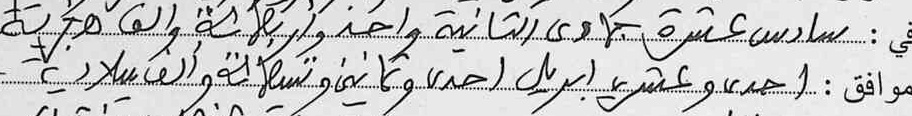 في : سادس عشرة جمادى الثانية واحد وأربعمائة وألف هجرية
موافق : احدى وعشرين ابريل احدى وثمانين وتسعمائة وألف ميلادية